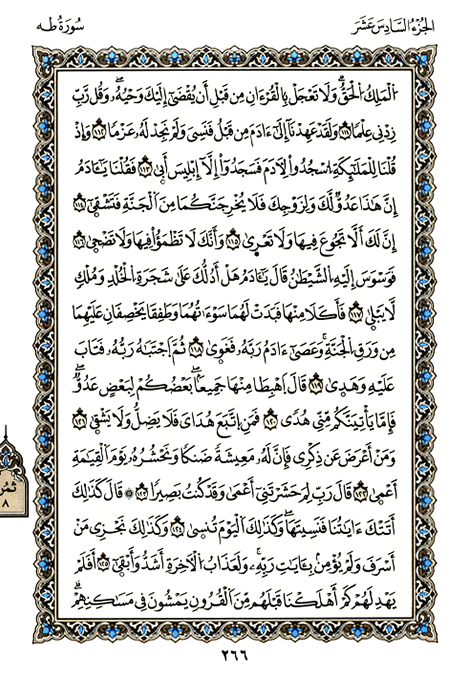 الجُزْءُ السَّادِسَ عَشَرَ
سُورَةُ طه
اَلْمَلِكُ الْحَقُّ وَلَا تَعْجَلْ بِالْقُرْءَانِ مِن قَبْلِ أَن يُقْضَىٰ إِلَيْكَ وَحْيُهُ وَقُل رَّبِّ
زِدْنِي عِلْمًا ١١١ وَلَقَدْ عَهِدْنَا إِلَىٰ ءَادَمَ مِن قَبْلُ فَنَسِيَ وَلَمْ نَجِدْ لَهُ عَزْمًا ١١٢ وَإِذْ
قُلْنَا لِلْمَلَٰئِكَةِ اِسْجُدُوا لِأَدَمَ فَسَجَدُوا إِلَّا إِبْلِيسَ أَبَىٰ ١١٣ فَقُلْنَا يَٰـَٔادَمُ
إِنَّ هَٰذَا عَدُوٌّ لَّكَ وَلِزَوْجِكَ فَلَا يُخْرِجَنَّكُمَا مِنَ اَلْجَنَّةِ فَتَشْقَىٰ ١١٤
إِنَّ لَكَ أَلَّا تَجُوعَ فِيهَا وَلَا تَعْرَىٰ ١١٥ وَإِنَّكَ لَا تَظْمَؤُا فِيهَا وَلَا تَضْحَىٰ ١١٦
فَوَسْوَسَ إِلَيْهِ اِلشَّيْطَٰنُ قَالَ يَٰـَٔادَمُ هَلْ أَدُلُّكَ عَلَىٰ شَجَرَةِ اِلْخُلْدِ وَمُلْكٍ
لَّا يَبْلَىٰ ١١٧ فَأَكَلَا مِنْهَا فَبَدَتْ لَهُمَا سَوْءَٰتُهُمَا وَطَفِقَا يَخْصِفَانِ عَلَيْهِمَا
مِن وَرَقِ اِلْجَنَّةِ وَعَصَىٰ ءَادَمُ رَبَّهُ فَغَوَىٰ ١١٨ ثُمَّ اَجْتَبَٰهُ رَبُّهُ فَتَابَ
عَلَيْهِ وَهَدَىٰ ١١٩ قَالَ اَهْبِطَا مِنْهَا جَمِيعًا بَعْضُكُمْ لِبَعْضٍ عَدُوٌّ
فَإِمَّا يَأْتِيَنَّكُم مِّنِّي هُدًى ١٢٠ فَمَنِ اِتَّبَعَ هُدَايَ فَلَا يَضِلُّ وَلَا يَشْقَىٰ ١٢١
وَمَنْ أَعْرَضَ عَن ذِكْرِي فَإِنَّ لَهُ مَعِيشَةً ضَنكًا وَنَحْشُرُهُ يَوْمَ اَلْقِيَٰمَةِ
أَعْمَىٰ ١٢٢ قَالَ رَبِّ لِمَ حَشَرْتَنِي أَعْمَىٰ وَقَدْ كُنتُ بَصِيرًا ١٢٣ قَالَ كَذَٰلِكَ
أَتَتْكَ ءَايَٰتُنَا فَنَسِيتَهَا وَكَذَٰلِكَ اَلْيَوْمَ تُنسَىٰ ١٢٤ وَكَذَٰلِكَ نَجْزِي مَنْ
أَسْرَفَ وَلَمْ يُؤْمِنۢ بِـَٔايَٰتِ رَبِّهِ وَلَعَذَابُ اَلْأٓخِرَةِ أَشَدُّ وَأَبْقَىٰ ١٢٥ أَفَلَمْ
يَهْدِ لَهُمْ كَمْ أَهْلَكْنَا قَبْلَهُم مِّنَ اَلْقُرُونِ يَمْشُونَ فِي مَسَٰكِنِهِمْ
ثمن
٨
٢٦٦